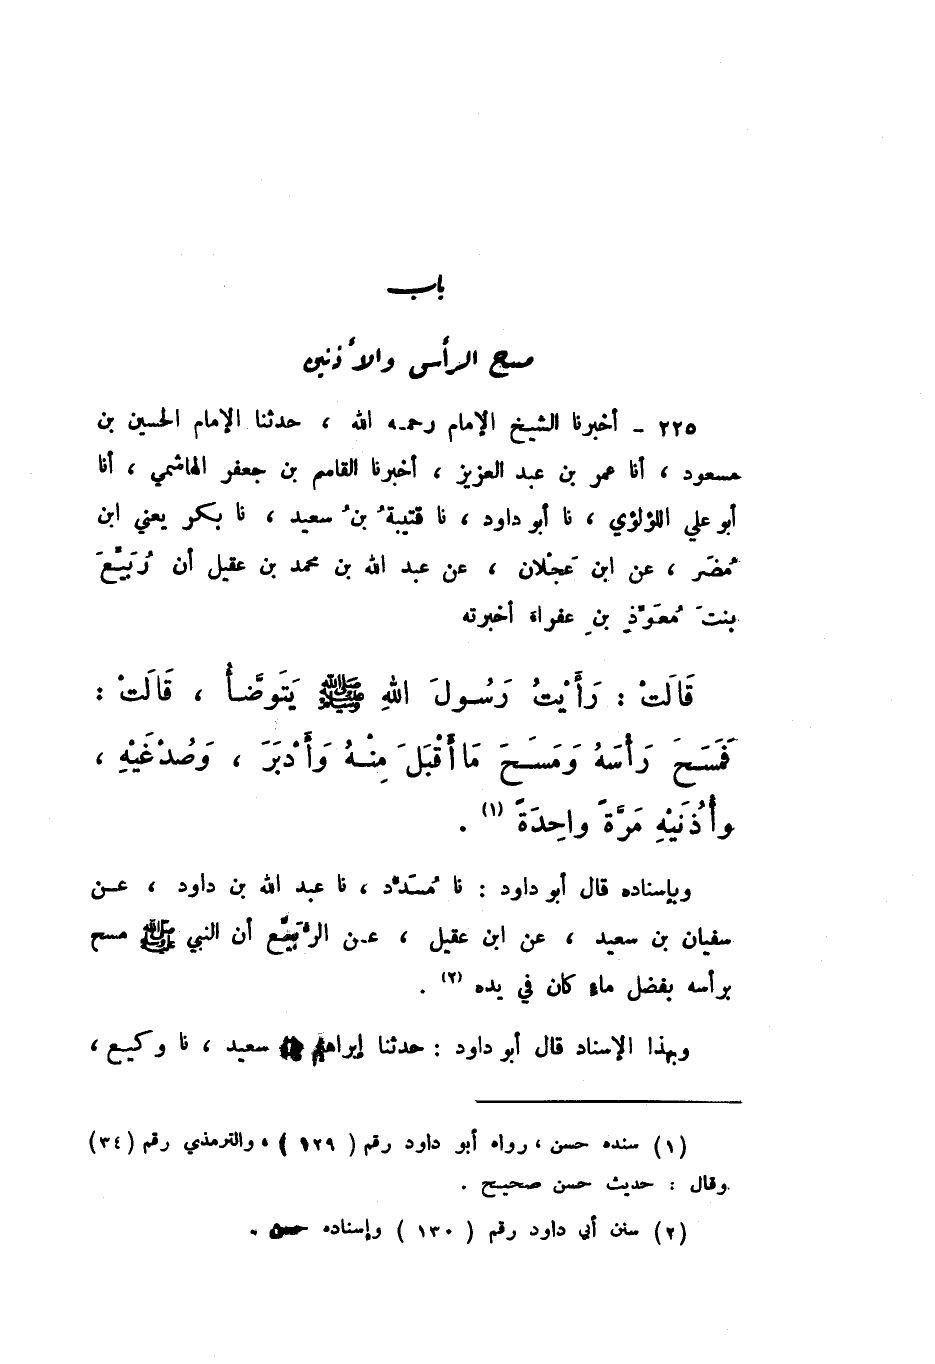 باب
مسح الرأس والأذنين
٢٢٥ – أخبرنا الشيخ الإمام رحمه الله ، حدثنا الإمام الحسين بن
مسعود ، أنا عمر بن عبد العزيز ، أخبرنا القاسم بن جعفر الهاشمي ، أنا
أبو علي اللؤلؤي ، نا أبو داود ، نا قتيبةُ بنُ سعيد ، نا بكر يعني ابن
مُضَر ، عن ابن عَجْلان ، عن عبد الله بن محمد بن عقيل أن رُبَيِّعَ
بنتَ مُعَوِّذِ بنِ عفراءَ أخبرته
قَالَتْ : رَأَيْتُ رَسُولَ اللهِ ﷺ يَتَوَضَّأُ ، قَالَتْ :
فَمَسَحَ رَأْسَهُ وَمَسَحَ مَا أَقْبَلَ مِنْهُ وَأَدْبَرَ ، وَصُدْغَيْهِ ،
وأُذُنَيْهِ مَرَّةً واحِدَةً (١) .
وبإسناده قال أبو داود : نا مُسَدَّد ، نا عبد الله بن داود ، عن
سفيان بن سعيد ، عن ابن عقيل ، عن الرُّبَيِّع أن النبي ﷺ مسح
برأسه بفضل ماءٍ كان في يده (٢) .
وبهذا الإسناد قال أبو داود : حدثنا إبراهيم سعيد ، نا وكيع ،
(١) سنده حسن ، رواه أبو داود رقم ( ١٢٩ ) ، والترمذي رقم (٣٤)
وقال : حديث حسن صحيح .
(٢) سنن أبي داود رقم ( ١٣٠ ) وإسناده حسن .